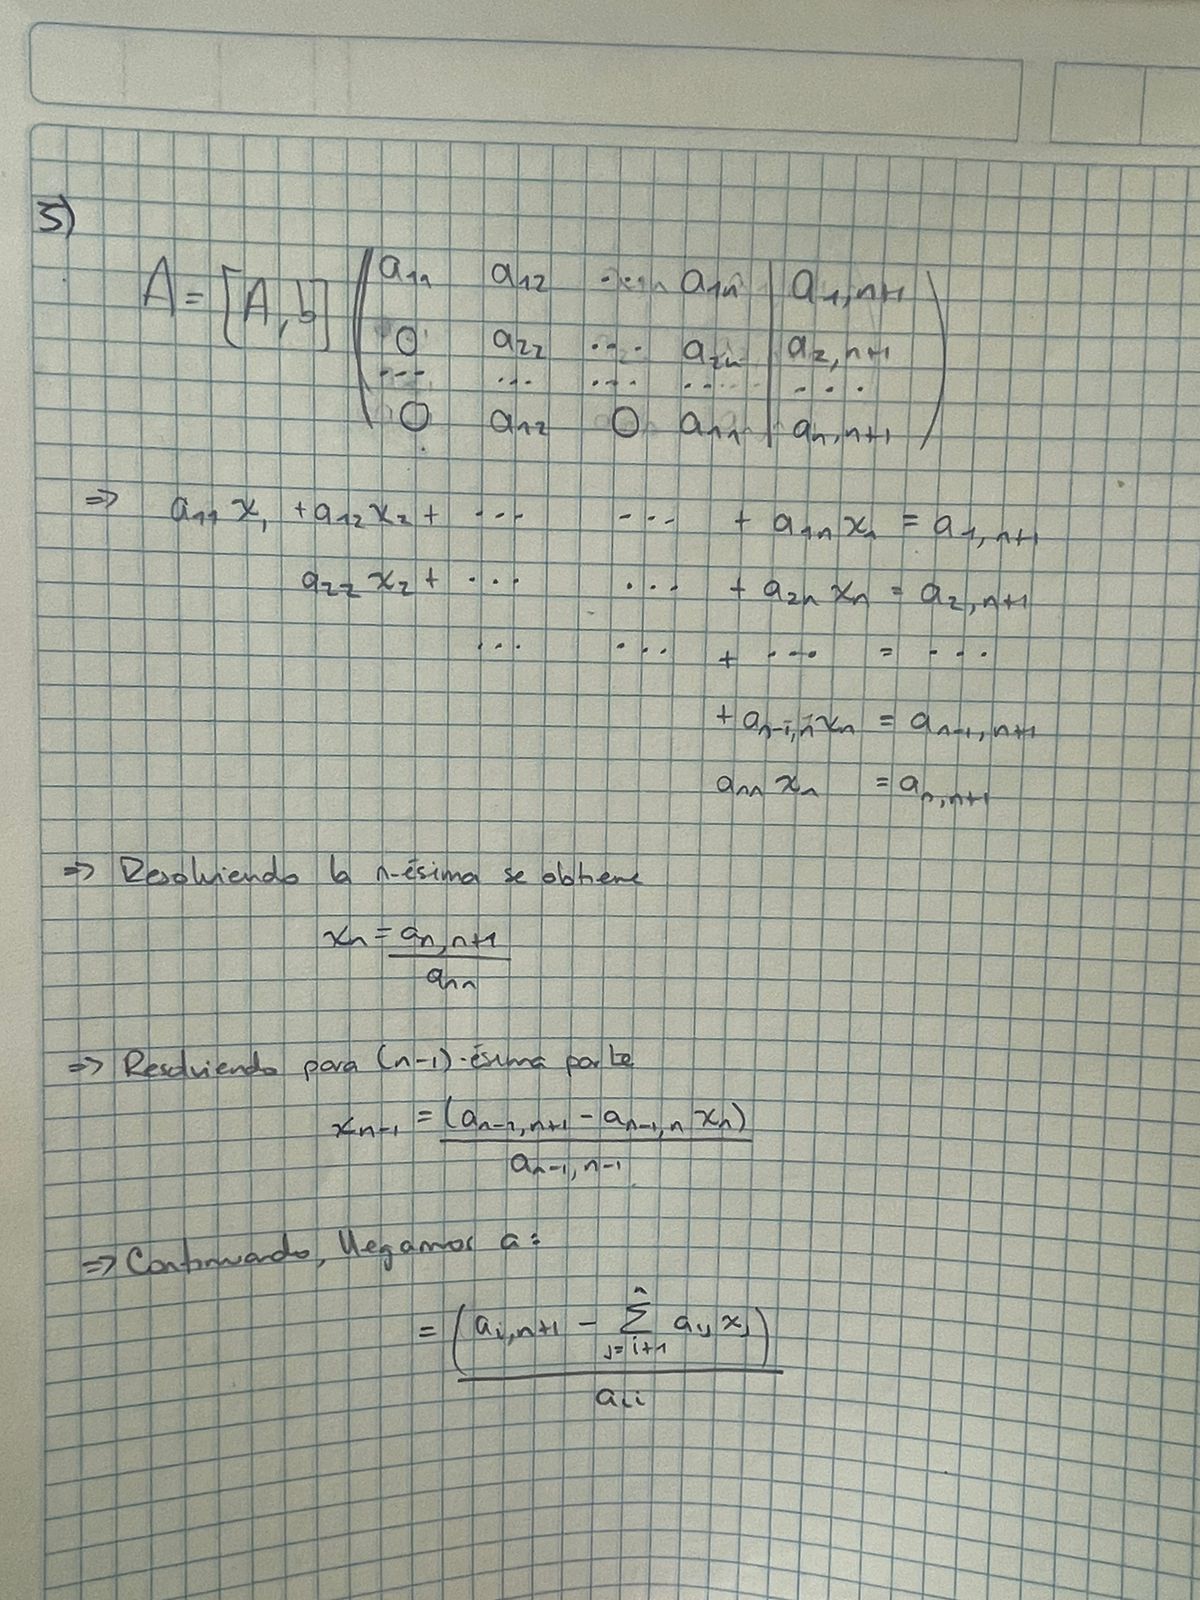 5)
A = [A, b] ( a₁₁ a₁₂ ... a₁ₙ | a₁,ₙ₊₁ )
0 a₂₂ .... a₂ₙ | a₂,ₙ₊₁
... ... .... .... | ...
0 a₁₂ 0 aₙₙ | aₙ,ₙ₊₁
⇒ a₁₁ x₁ + a₁₂ x₂ + ... ... + a₁ₙ xₙ = a₁,ₙ₊₁
a₂₂ x₂ + ... ... + a₂ₙ xₙ = a₂,ₙ₊₁
... ... + ... = ...
+ aₙ₋₁,ₙ xₙ = aₙ₋₁,ₙ₊₁
aₙₙ xₙ = aₙ,ₙ₊₁
⇒ Resolviendo la n-ésima se obtiene
xₙ = aₙ,ₙ₊₁
aₙₙ
⇒ Resolviendo para (n-1)-ésima parte
xₙ₋₁ = (aₙ₋₁,ₙ₊₁ - aₙ₋₁,ₙ xₙ)
aₙ₋₁,ₙ₋₁
⇒ Continuando, llegamos a:
n
= ( aᵢ,ₙ₊₁ - Σ aᵢⱼ xⱼ )
j=i+1
aᵢᵢ